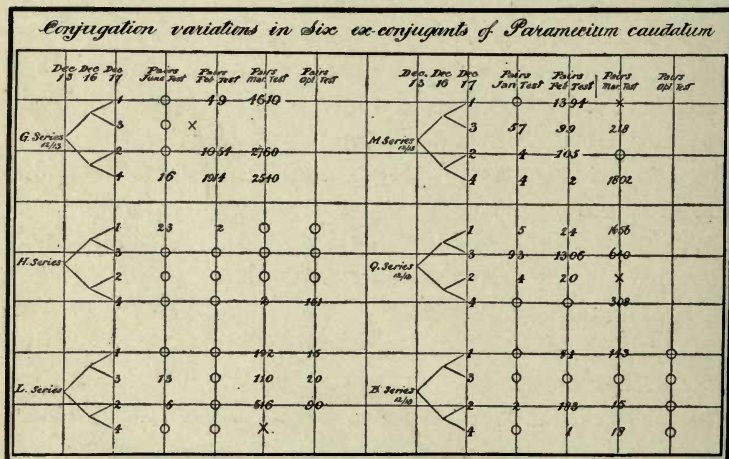 Conjugation variations in Six ex-conjugants of Paramecium caudatum
Dec 13 Dec 16 Dec 17 Pairs June Test Pairs Feb Test Pairs Mar. Test Pairs Apl Test
G. Series 12/13
1 O 49 1610
3 O X
2 O 1051 2760
4 16 1914 2540
H. Series
1 23 2 O O
3 O O O O
2 O O O O
4 O O 2 161
L. Series
1 O O 192 15
3 13 O 110 20
2 6 O 516 90
4 O O X
Dec. 13 Dec 16 Dec 17 Pairs Jan Test Pairs Feb Test Pairs Mar. Test Pairs Apl Test
M. Series 12/13
1 O 1394 X
3 57 99 218
2 4 105 O
4 4 2 1802
Q. Series 12/13
1 5 24 1656
3 93 1306 640
2 4 20 X
4 O O 308
B Series 12/13
1 O 143 O
3 O O O O
2 2 15 O
4 O 1 19 O